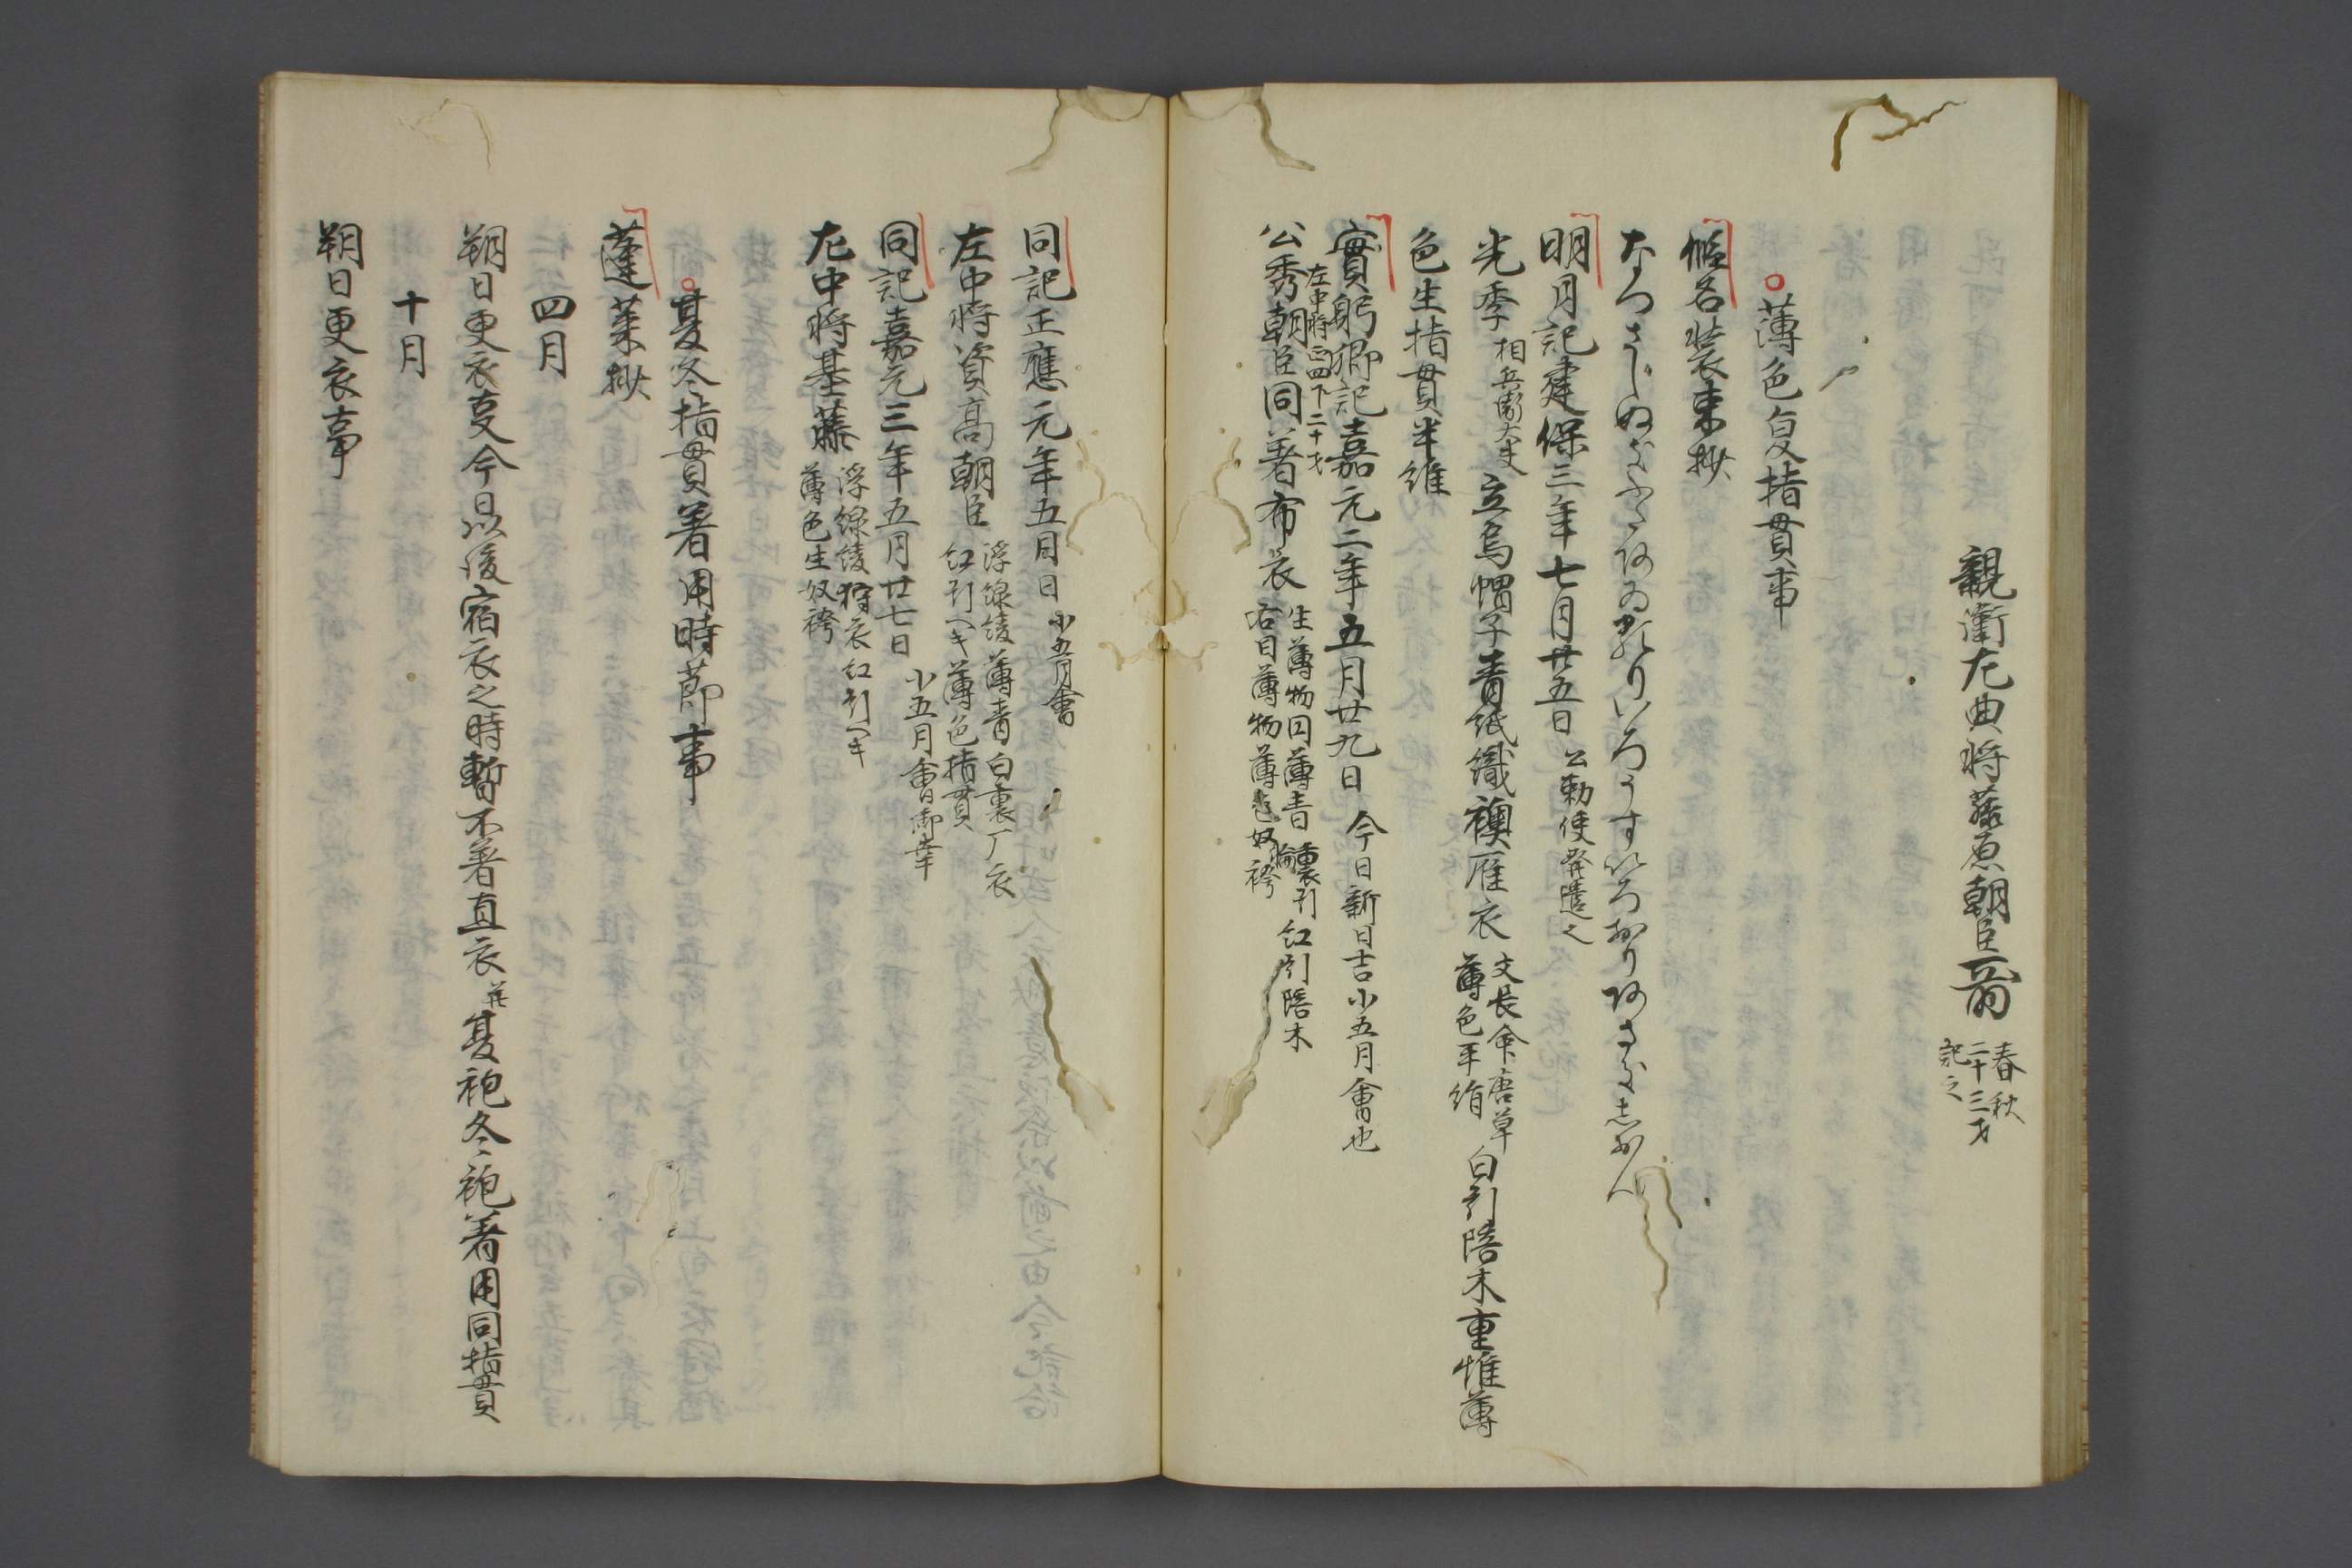 親衛左典将藤原朝臣
春秋
二十三才
記之
薄色夏指貫事
仮名装束抄
なつさしぬき
いろうすいろおり
明月記建保三年七月廿五日 公勅使発遣之
光季 相兵衛大夫 立烏帽子青紙織襖雁衣 文長命唐草 薄色平絹 白引陪木重帷薄
色生指貫半維
実躬卿記嘉元二年五月廿九日 今日新日吉小五月会也
左中将正四下二十才
公秀朝臣同着布衣 生薄物同薄青 裏引 紅引陪木
右目薄物薄色奴袴
同記正應元年五月日 小五月會
左中将資高朝臣 浮線綾薄青白裏广衣
紅引ヘキ薄色指貫
同記嘉元三年五月廿七日 小五月會御幸
左中将基藤 浮線綾狩衣紅引ヘキ
薄色生奴袴
夏冬指貫著用時節事
蓬莱抄
四月
朔日更衣事今日以後宿衣之時暫不著直衣 并 夏袍冬袍著用同指貫
十月
朔日更衣事